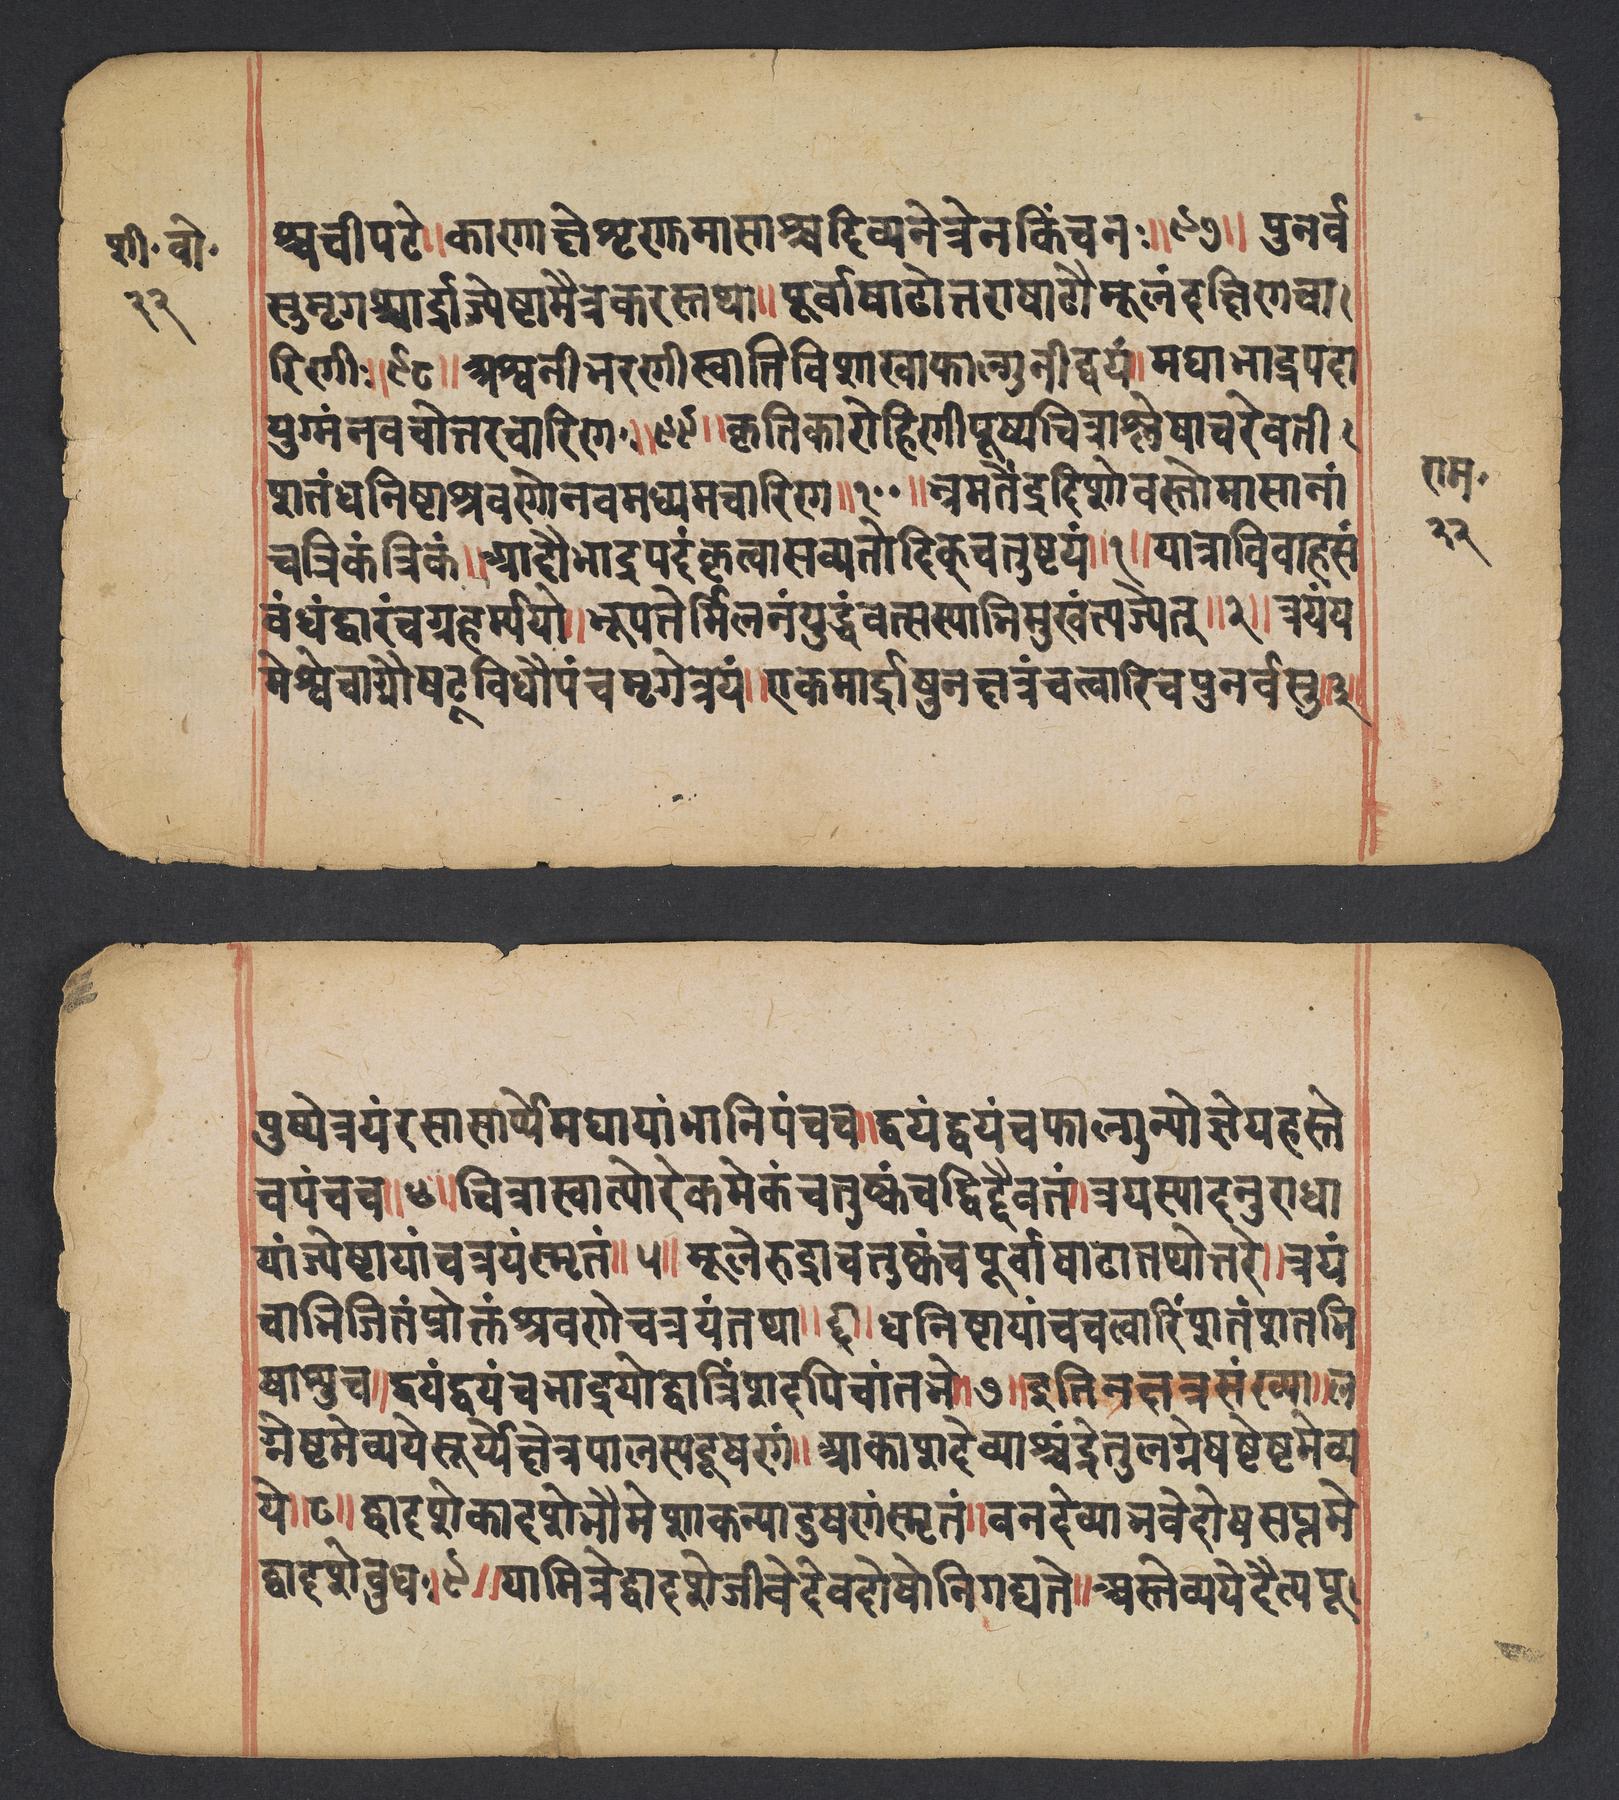 शी॰ बो॰
३२
श्चचीपटे॥ काणाक्षेशृणमासाश्चदिव्यनेत्रेनकिंचनः॥९७॥ पुनर्व
सुमृगश्चार्द्राज्येष्टामैत्रकरस्तथा॥ पूर्वाषाढोत्तराषाढौमूलंदक्षिणचा
रिणीः॥९८॥ अश्वनीभरणीस्वातिविशाखाफाल्गुनीद्वयं॥ मघाभाद्रपदा
युग्मंनवचोत्तरचारिणः॥९९॥ कृतिकारोहिणीपूष्यचित्राश्लेषाचरेवती
शतंधनिष्टाश्रवणोनवमध्यमचारिण॥१००॥ न्नमतैंद्रदिशोवस्तोमासानां
चत्रिकंत्रिकं॥ आदौभाद्रपदंकृत्वासव्यतोदिक्चतुष्टयं॥१॥ यात्राविवाहसं
वंधंद्वारंचग्रहर्म्ययो॥ भूपतेर्मिलनंयुद्धंवत्सस्याभिमुखंत्यज्येत्॥२॥ त्रयंय
मेश्वेचाग्यौषट्विधौपंचमृगेत्रयं॥ एकमार्द्राषुनक्षत्रंचत्वारिचपुनर्वसु॥३॥
राम॰
३२
पुष्येत्रयंरसासार्प्येमघायांभानिपंचच॥ द्वयंद्वयंचफाल्गुन्योज्ञेयहस्ते
चपंचच॥४॥ चित्रास्वात्योरेकमेकंचतुष्कंचद्विद्दैवतं॥ त्रयस्यादनुराधा
यांज्येष्टायांचत्रयंस्मृतं॥५॥ मूलेरुद्राचतुष्कंचपूर्वाषाढातथोत्तरे॥ त्रयं
चाभिजितंप्रोक्तंश्रवणेचत्रयंतथा॥६॥ धनिष्टायांचचत्वारिंशतंशतभि
षाप्युच॥ द्वयंद्वयंचभाद्रयोद्वात्रिंशदपिचांतभे॥७॥ इतिनक्षत्रसंख्या॥ ल
ग्नेष्टमेव्ययेसूर्य्येक्षेत्रपालस्यदूषणं॥ आकाशदेव्याश्चंद्रेतुलग्नेषष्टेष्टमेव्य
ये॥८॥ द्वादशेकादशेभौमेशाकन्यादुषणंस्मृतं॥ वनदेव्याभवेदोषसप्तमे
द्वादशेबुधः॥९॥ यामित्रेद्वादशेजीवेदेवदोषोनिगद्यते॥ अस्तेव्ययेदैत्यपू